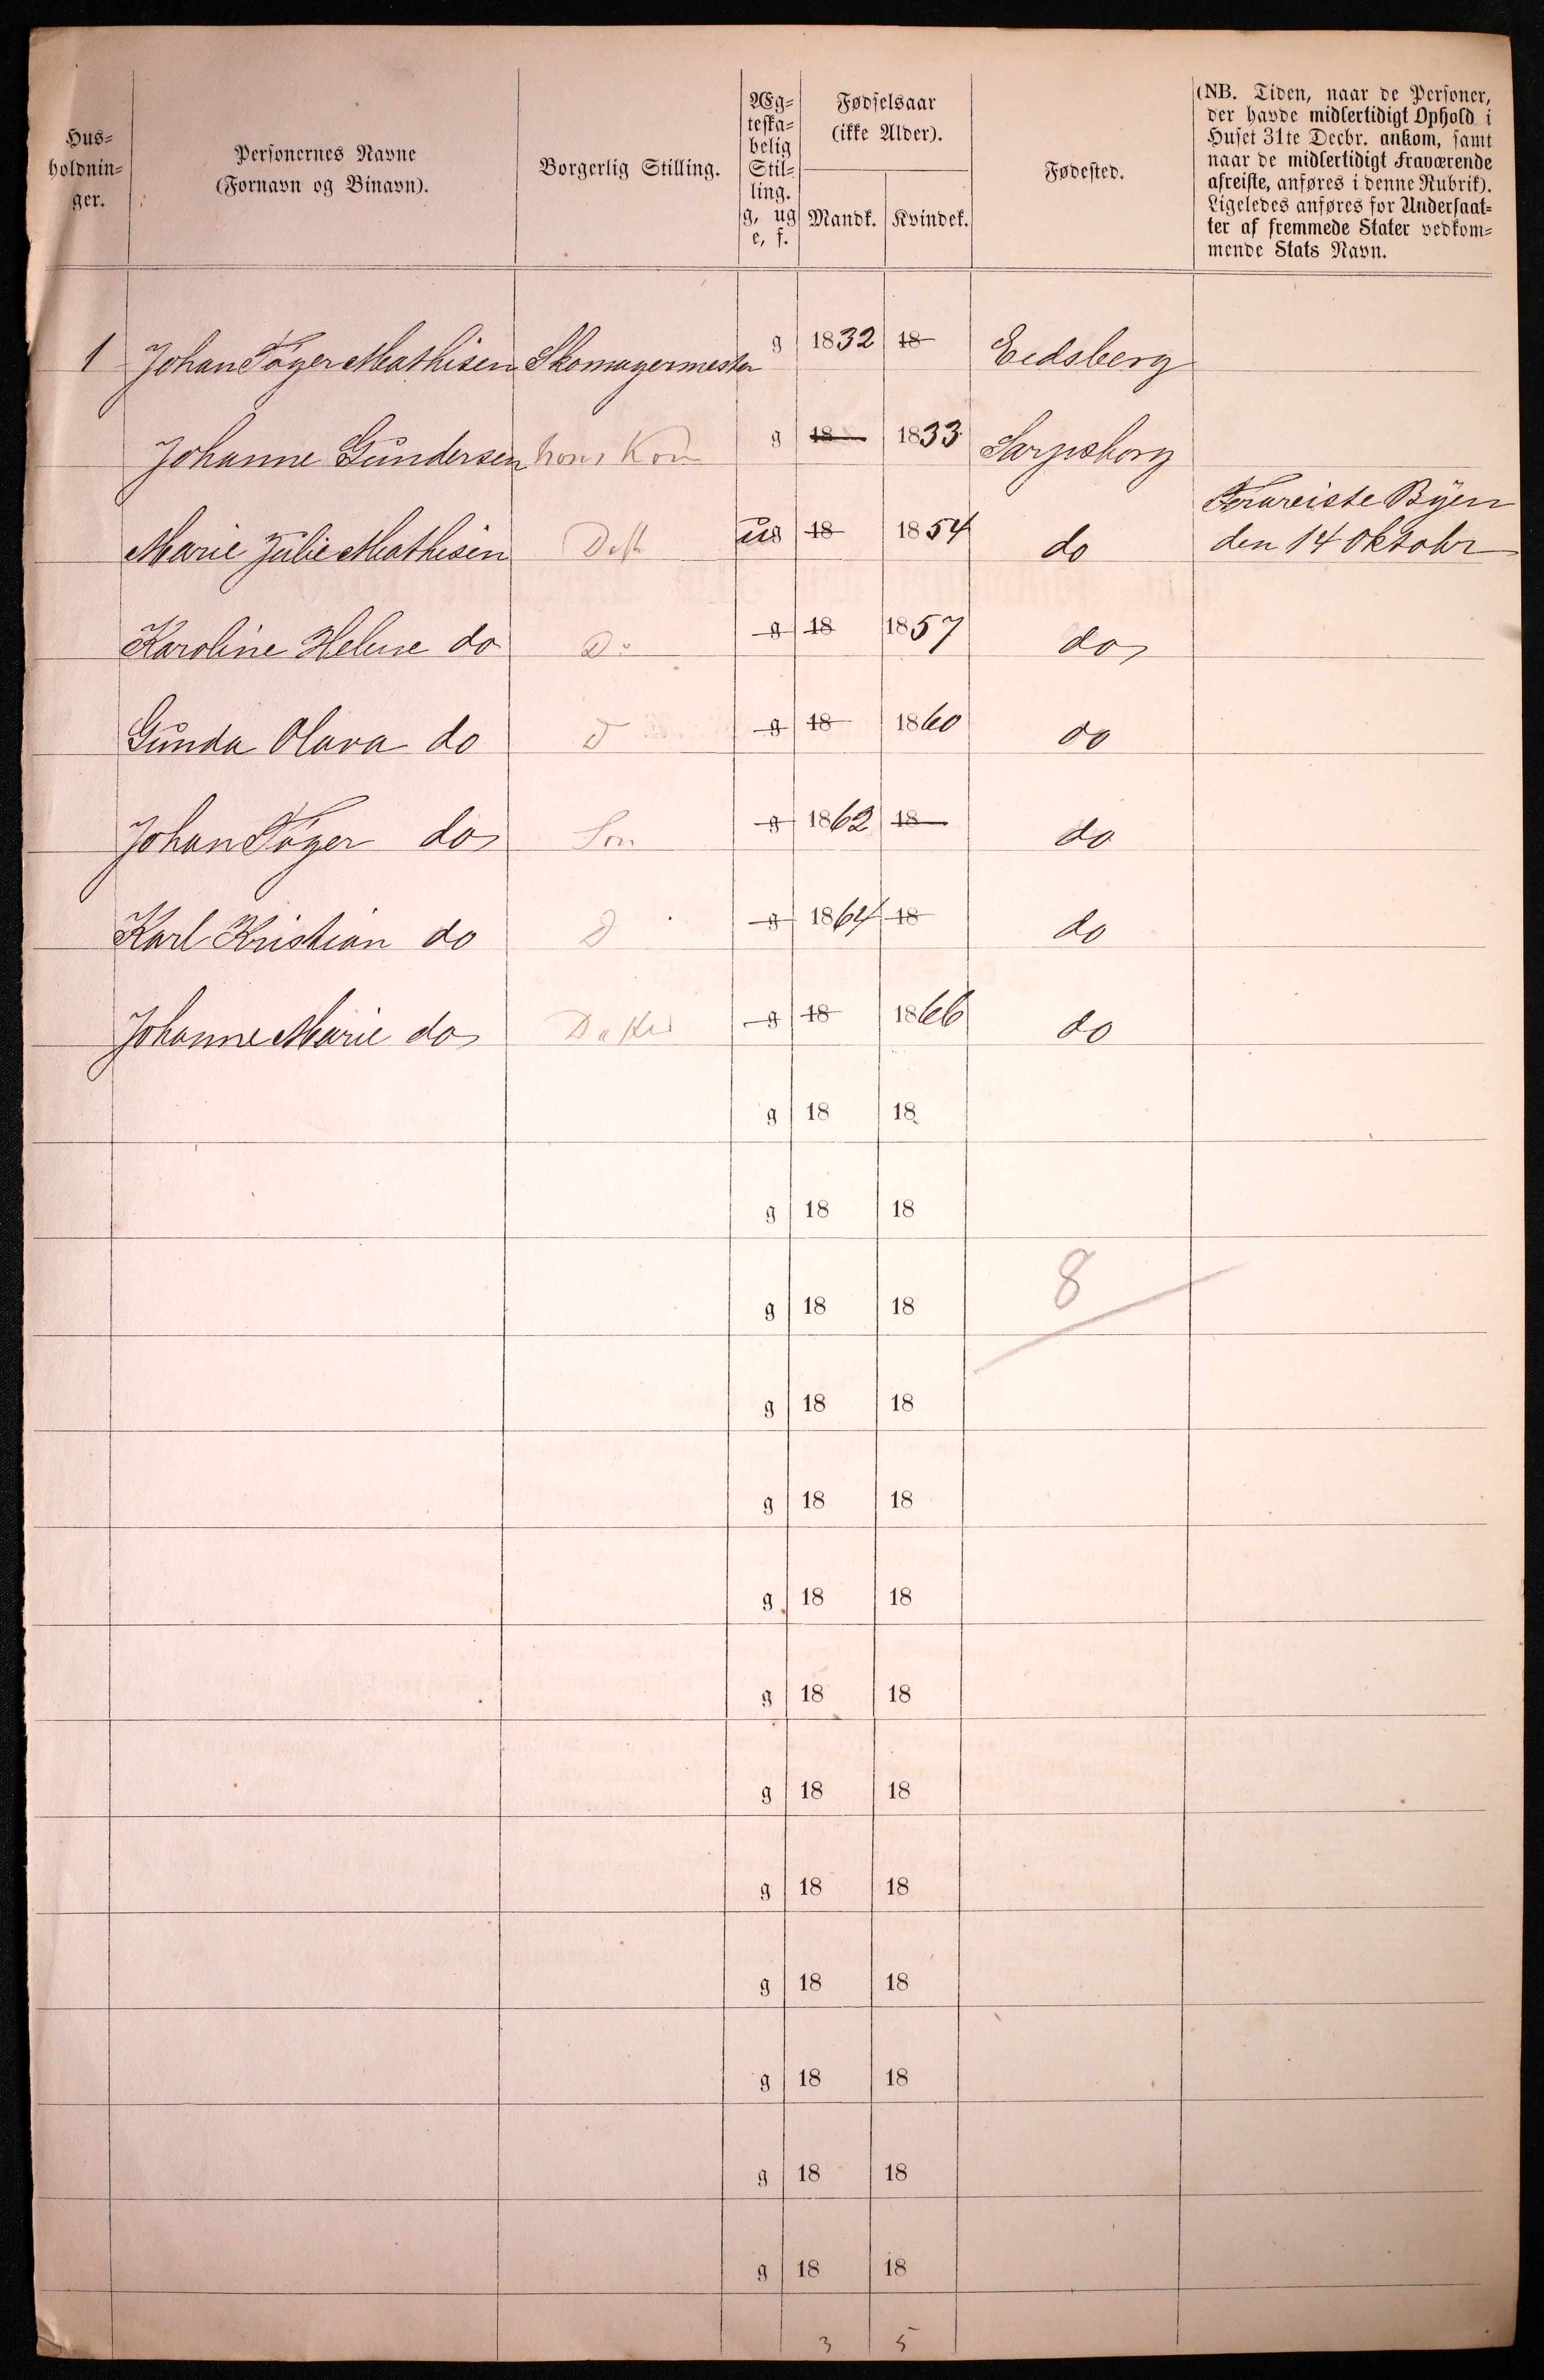 Hus-
holdnin-
ger.
Personernes Navne
(Fornavn og Binavn).
Borgerlig Stilling.
Æg-
teska-
belig
Stil-
ling.
g, ug
e, f.
Fødselsaar
(ikke Alder).
Mandk. Kvindek.
Fødested.
(NB. Tiden, naar de Personer,
der havde midlertidigt Ophold i
Huset 31te Decbr. ankom, samt
naar de midlertidigt Fraværende
afreiste, anføres i denne Rubrik).
Ligeledes anføres for Undersaat-
ter af fremmede Stater vedkom-
mende Stats Navn.
1 Johan Tøger Mathisen Skomagermester g 1832 18 Eedsberg
Johanne Gundersen hans Kone g 18 1833 Sarpsborg
Marie Julie Mathisen ug 18 1854 do Frareiste Byen
den 14 Oktobr
Karoline Helene do Do g 18 1857 do
Gunda Olava do D g 18 1860 do
Johan Tøger do Søn g 1862 18 do
Karl Kristian do D g 1864 18 do
Johanne Marie do g 18 1866 do
g 18 18
g 18 18
g 18 18 8
g 18 18
g 18 18
g 18 18
g 18 18
g 18 18
g 18 18
g 18 18
g 18 18
g 18 18
g 18 18
3 5